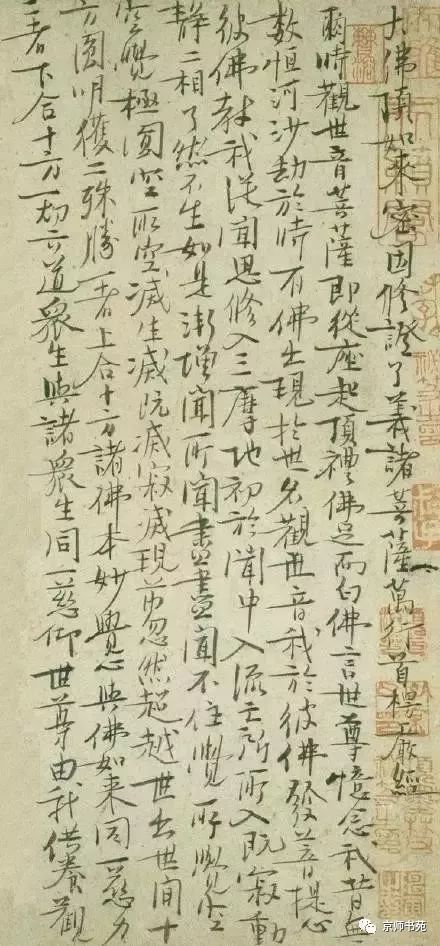 大佛頂如來密因修證了義諸菩薩萬行首楞嚴經
爾時觀世音菩薩即從座起頂禮佛足而白佛言世尊憶念我昔無
數恒河沙劫於時有佛出現於世名觀世音我於彼佛發菩提心
彼佛教我從聞思修入三摩地初於聞中入流亡所所入既寂動
靜二相了然不生如是漸增聞所聞盡盡聞不住覺所覺空
空覺極圓空所空滅生滅既滅寂滅現前忽然超越世出世間十
方圓明獲二殊勝一者上合十方諸佛本妙覺心與佛如來同一慈力
二者下合十方一切六道眾生與諸眾生同一悲仰世尊由我供養觀
京师书苑